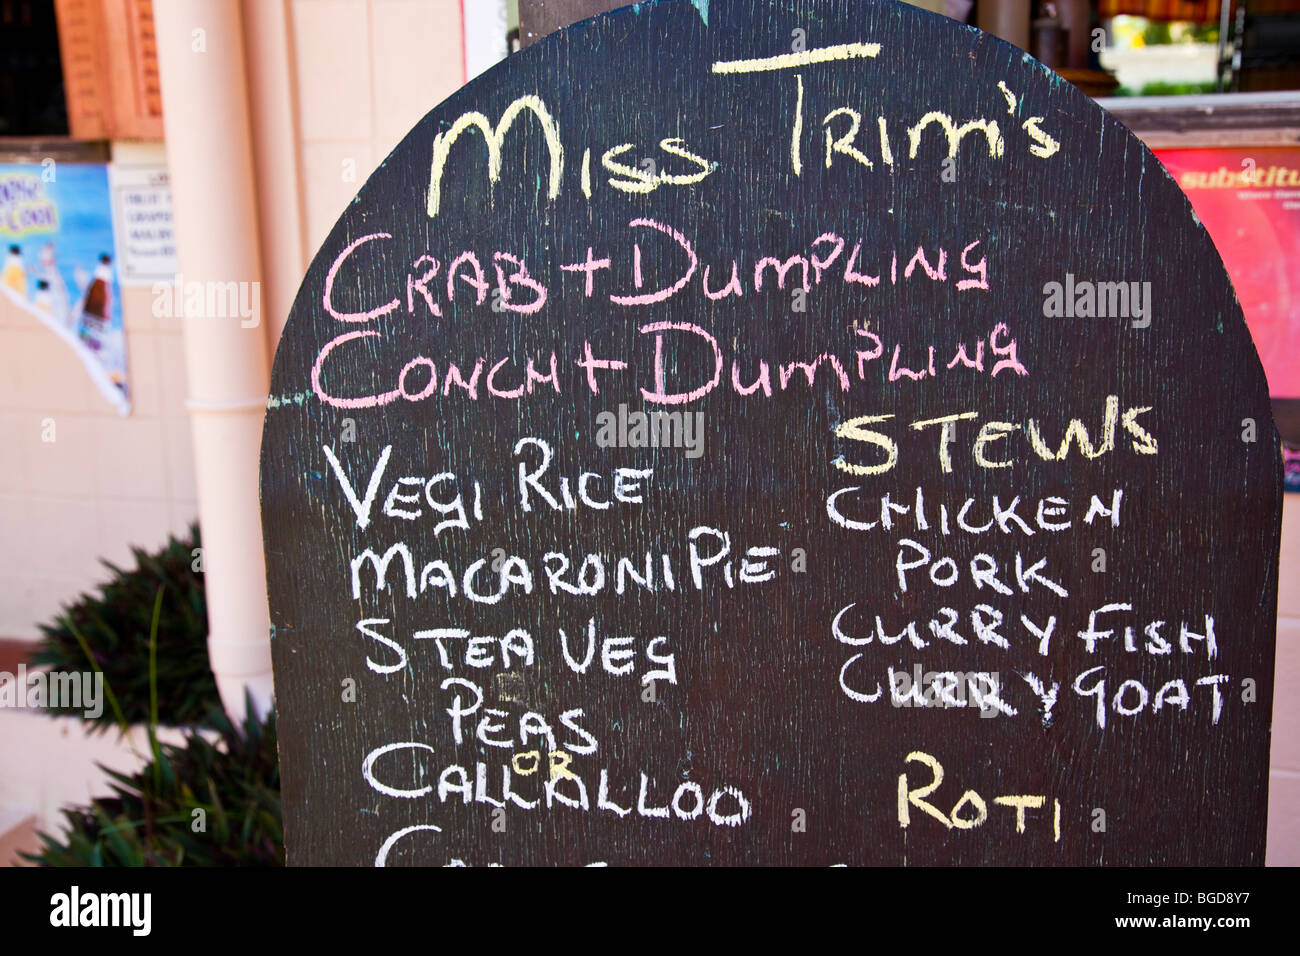 MISS TRIM'S
CRAB + DUMPLING
CONCH + DUMPLING
VEGI RICE
MACARONI PIE
STEA VEG
PEAS
OR
CALLALLOO
STEWS
CHICKEN
PORK
CURRY FISH
CURRY GOAT
ROTI
substitu
alamy
Image ID: BGD8Y7
www.alamy.com